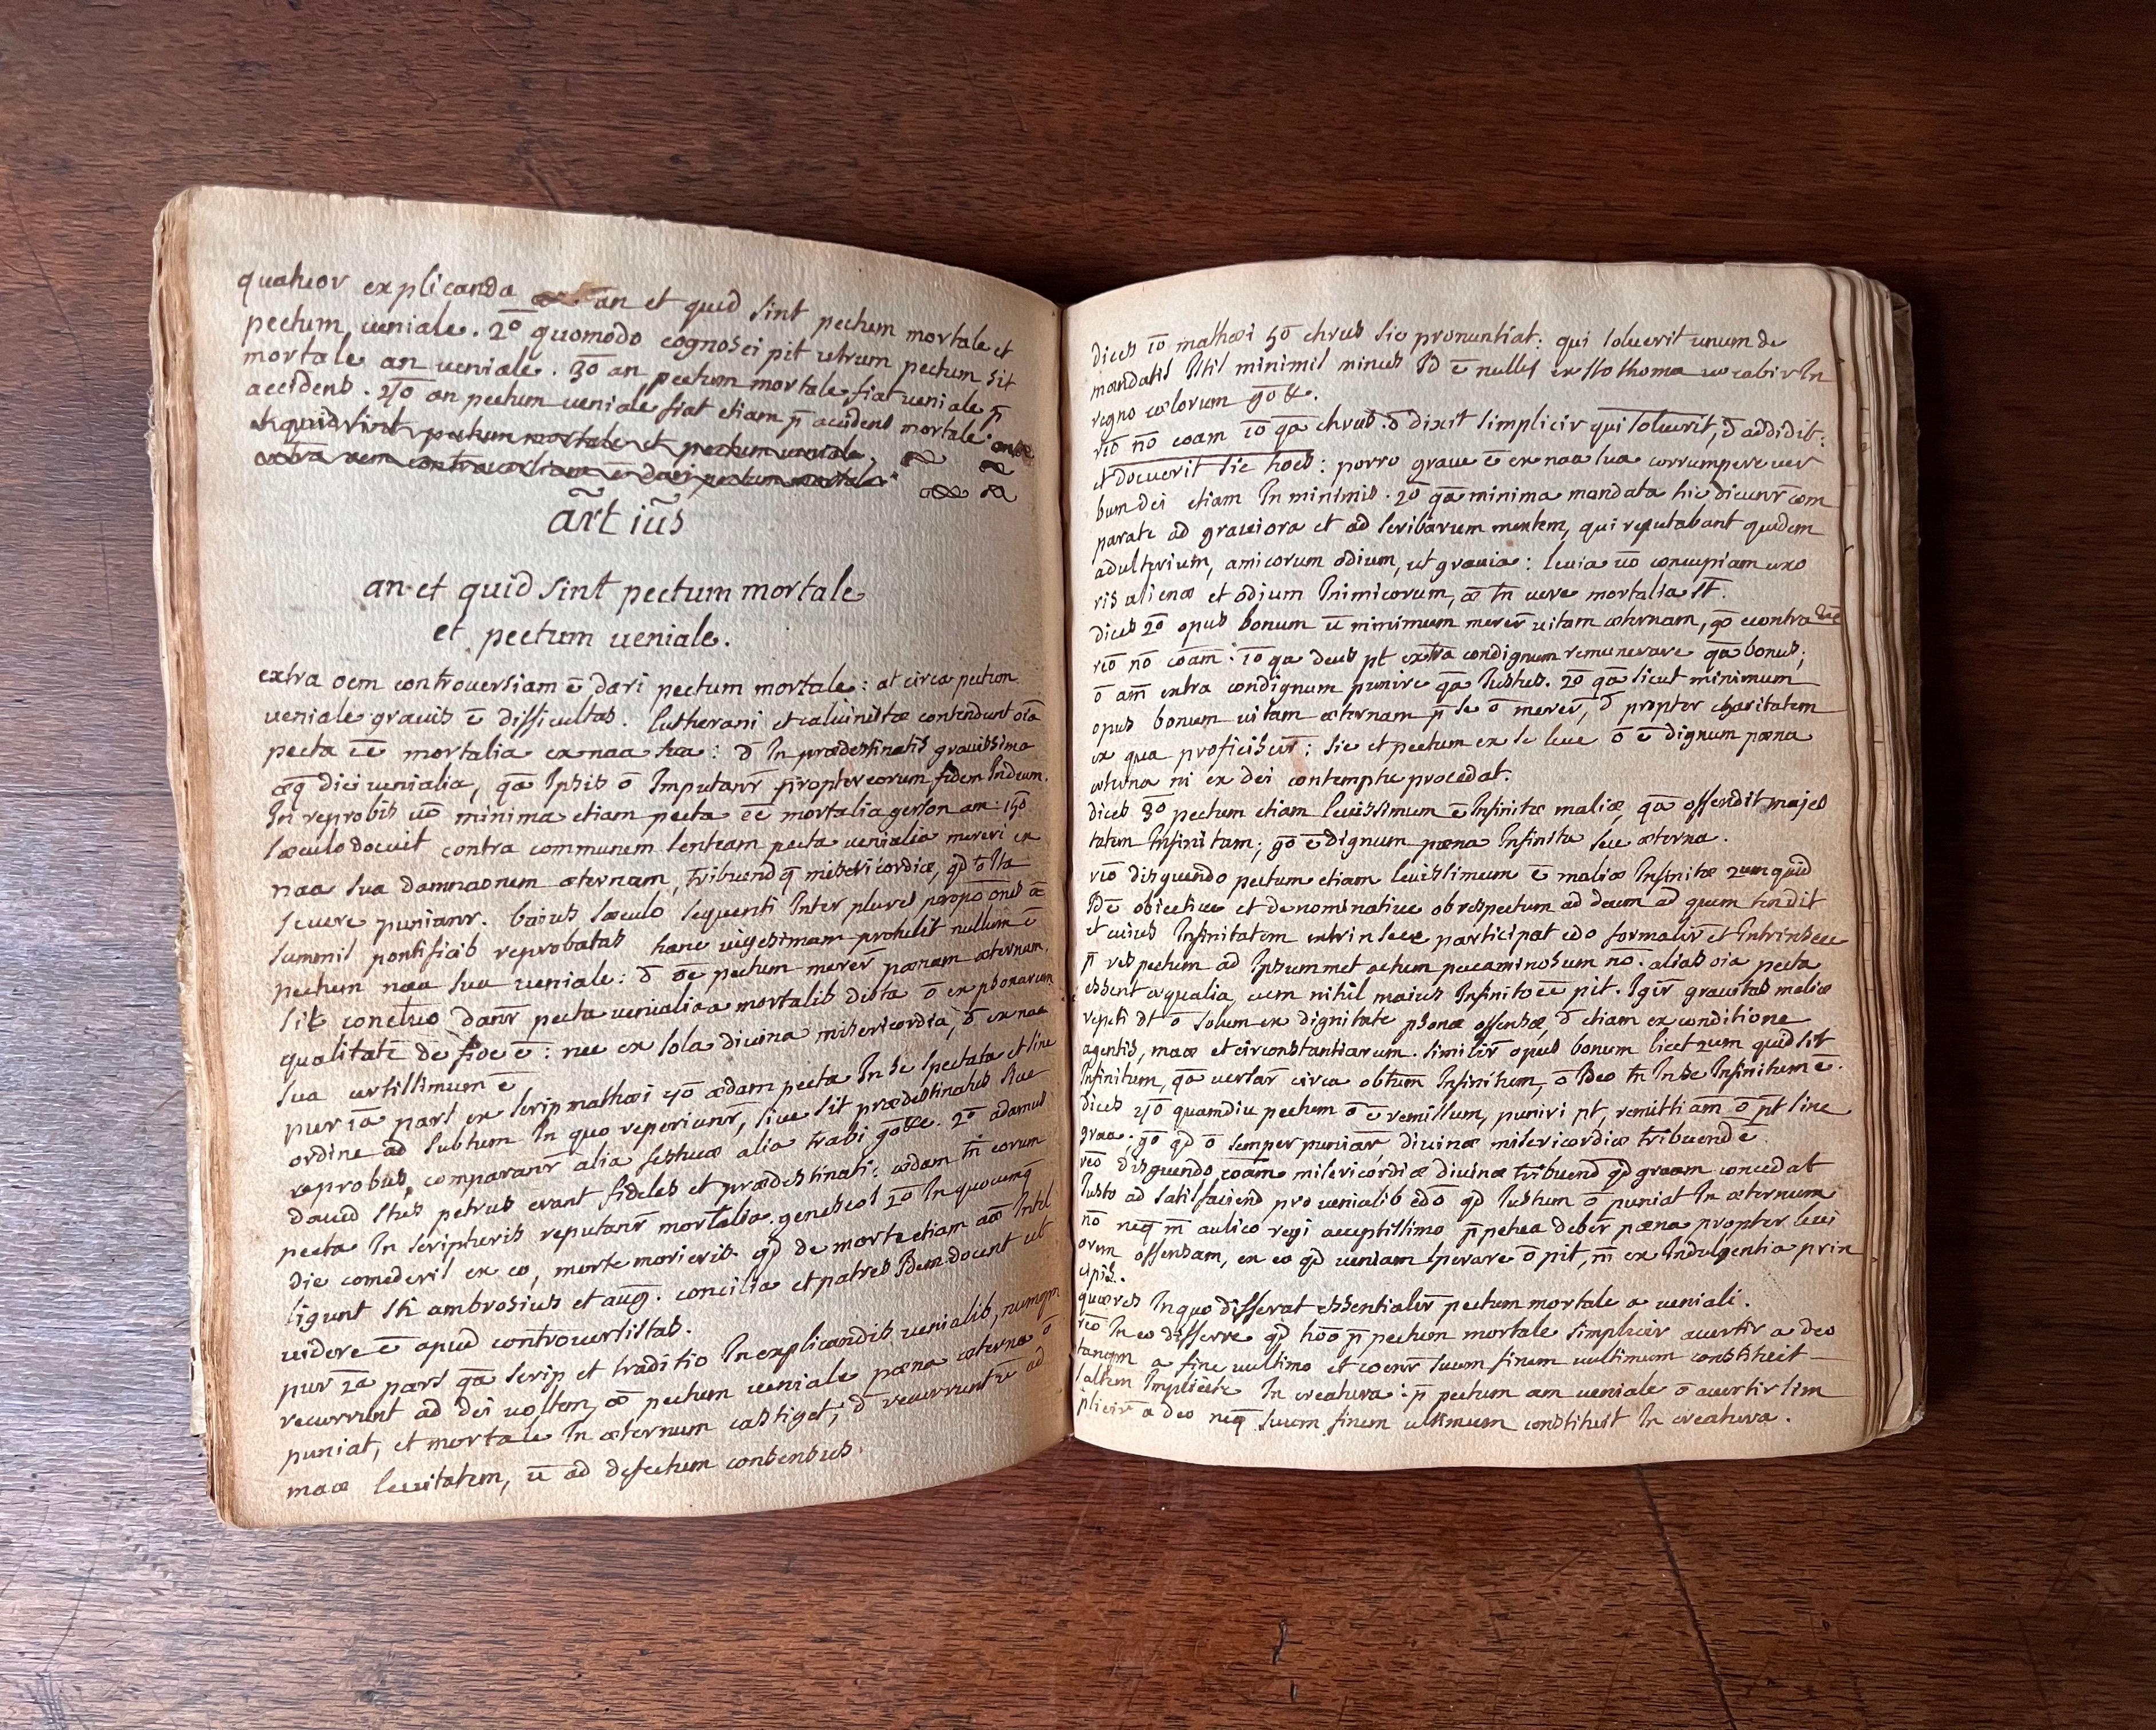 quatuor explicanda an et quid sint pectum mortale et
pectum veniale. 2o quomodo cognosci pit utrum pectum sit
mortale an veniale. 3o an pectum mortale fiat veniale p̄
accidens. 4o an pectum veniale fiat etiam p̄ accidens mortale.
et quid sint pectum mortale et pectum veniale.
extra oem controversiam ē dari pectum mortale
ārt iūs
an et quid sint pectum mortale
et pectum veniale.
extra oem controversiam ē dari pectum mortale: at circa pectum
veniale gravis ē difficultas. lutherani et calvinistæ contendunt oīa
pecta ēē mortalia ex naa sua: d̄ In prædestinatis gravissima
æq̄ dici venialia, qā Ipsis ō Imputanr̄ propter eorum fidem In deum.
In reprobis vō minima etiam pecta ēē mortalia gerson am 15o
sæculo docuit contra communem senteam pecta venialia mereri ex
naa sua damnaonem æternam, tribuendq̄ misericordiæ, qd̄ ō Ita
severe punianr. baius sæculo sequenti Inter plures propōones æ
summis pontificib reprobatas hanc vigesimam protulit nullum ē
pectum naa sua veniale: d̄ ōe pectum merer̄ pænam æternam.
sit concluo danr̄ pecta venialia a mortalib dista ō ex psonarum
qualitatē de fide ē: nec ex sola divina misericordia, d̄ ex naa
sua certissimum ē
pur 1a pars ex scrip mathæi 7o ædam pecta In se spectata et sine
ordine ad subtum In quo reperiunr̄, sive sit prædestinatus sive
reprobus, comparanr̄ alia festucæ alia trabi gō &c. 2o adamus
david stus petrus erant fideles et prædestinati: ædam tn̄ eorum
pecta In scripturis reputanr̄ mortalia. geneseos 2o In quocumq̄
die comederis ex eo, morte morieris. qd̄ de morte etiam aæ Intel
ligunt sti ambrosius et aug. concilia et patres Idem docent ut
videre ē apud controversistas.
pur 2a pars qā scrip et traditio In explicandis venialib, numqm
recurrunt ad dei voltem, æ pectum veniale pæna æterna ō
puniat, et mortale In æternum castiget; d̄ recurrunt v̄ ad
maæ levitatem, v̄ ad defectum consensus.
dices 1o mathæi 5o chrus sic pronuntiat: qui solverit unum de
mandatis Istis minimis minus Id ē nullus ex sto thoma vocabir In
regno cælorum gō &c.
rēo nō coam 1o qā chrus ō dixit simplicir qui solverit, d̄ addidit:
et docuerit sic hoes: porro grave ē ex naa sua corrumpere ver
bum dei etiam In minimis. 2o qā minima mandata hic dicunr̄ com
parate ad graviora et ad scribarum mentem, qui reputabant quidem
adulterium, amicorum odium, ut gravia: levia vō concupiam uxo
ris alienæ et odium Inimicorum, æ tn̄ vere mortalia st̄.
dices 2o opus bonum v̄ minimum merer̄ vitam æternam, gō econtra
rēo nō coam: 1o qa deus pt extra condignum remunerare qā bonus;
ō am̄ extra condignum punire qā Iustus. 2o qā sicut minimum
opus bonum vitam æternam p̄ se ō merer̄, d̄ propter charitatem
ex qua proficiscir̄; sic et pectum ex se leve ō ē dignum pæna
æterna ni ex dei contemptu procedat.
dices 3o pectum etiam levissimum ē Infinitæ maliæ, qā offendit majes
tatem Infinitam; gō ē dignum pæna Infinita seu æterna.
rēo disguendo pectum etiam levissimum ē maliæ Infinitæ 2um quid
Id ē obiective et denominative ob respectum ad deum ad quem tendit
et cuius Infinitatem extrinsece participat cdo formalir̄ et Intrinsece
p̄ respectum ad Ipsummet actum peccaminosum nō. alias oia pecta
essent æqualia, cum nihil maius Infinito ēē pit. Igir̄ gravitas maliæ
repeti dt ō solum ex dignitate psonæ offensæ, d̄ etiam ex conditione
agentis, maæ et circonstantiarum. similir̄ opus bonum licet 2um quid sit
Infinitum, qā versar̄ circa obtum Infinitum, ō Ideo tn̄ In se Infinitum ē.
dices 4o quamdiu pectum ō ē remissum, puniri pt, remitti am̄ ō pt sine
graa; gō qd̄ ō semper puniar̄ divinæ misericordiæ tribuend ē.
rēo disguendo coam misericordiæ divinæ tribuend qd̄ graam concedat
Iusto ad satisfaciend pro venialib cdo qd̄ Iustum ō puniat In æternum
nō neq̄ m̄ aulico regi acceptissimo p̄petua deber̄ pæna propter levi
orem offensam, ex eo qd̄ veniam sperare ō pit, n̄ ex Indulgentia prin
cipis.
quæres In quo differat essentialir̄ pectum mortale a veniali.
rēo In eo differre qd̄ hōo p̄ pectum mortale simplicir avertir a deo
tanqm a fine vultimo et coenr̄ suum finem vultimum constituit
saltem Implicite In creatura: p̄ pectum am veniale ō avertir sim
plicir̄ a deo neq̄ suum finem ultimum constituit In creatura.